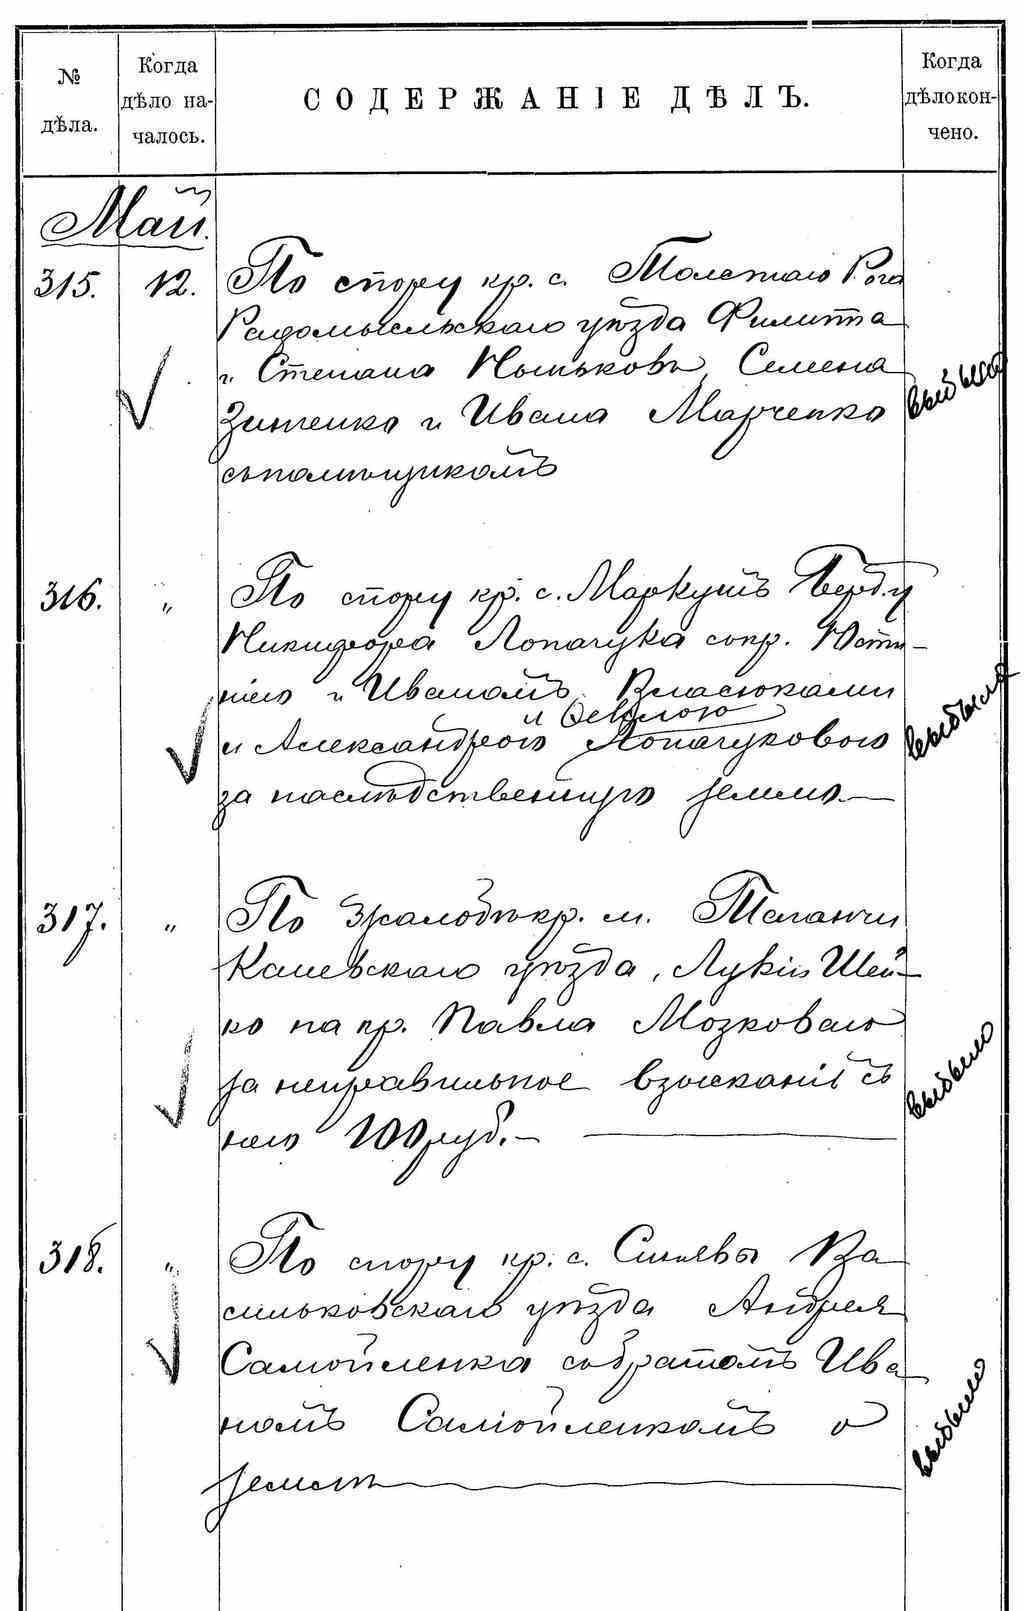 № дѣла.
Когда дѣло на-
чалось.
СОДЕРЖАНІЕ ДѢЛЪ.
Когда дѣло кон-
чено.
Май.
315. 12. По спору кр. с. Толстаго Рога
Радомысльскаго уѣзда Филиппа
и Степана Семена
и Ивана Марченко выбыло
съ помѣщикомъ
316. " По спору кр. с. Маркушъ Берд. у
Никифора Лопачука съ кр. Юсти-
ніею и Иваномъ Власюками
и Феклою
и Александрою Лопачуковою выбыло
за наслѣдственную землю.—
317. " По жалобѣ кр. м. Таганчи
Каневскаго уѣзда, Лукіи Шей-
ко на кр. Павла Мозковаго
за неправильное взысканіе съ выбыло
него 100 руб.—
318. " По спору кр. с. Синявы Ва-
сильковскаго уѣзда Андрея
Самойленка съ братомъ Ива-
номъ Самойленкомъ о выбыло
землѣ